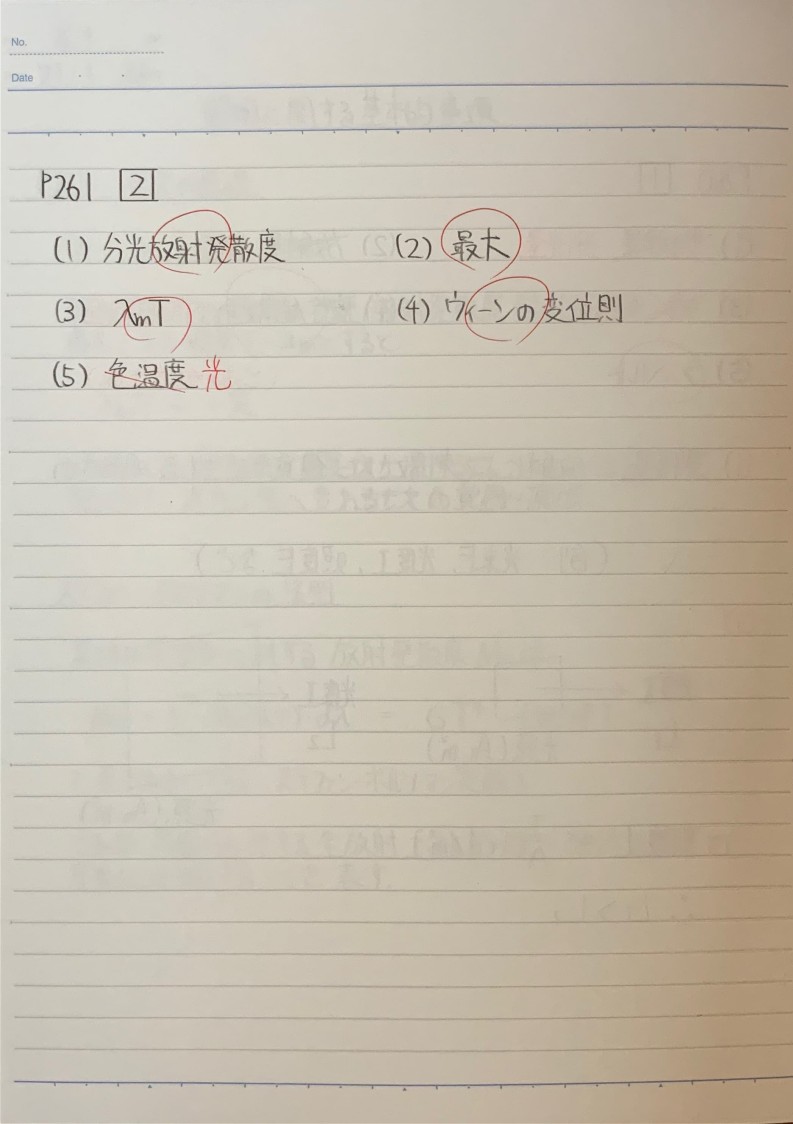 No.
Date
P261 2
(1) 分光放射発散度 (2) 最大
(3) λmT (4) ウィーンの変位則
(5) 色温度 光